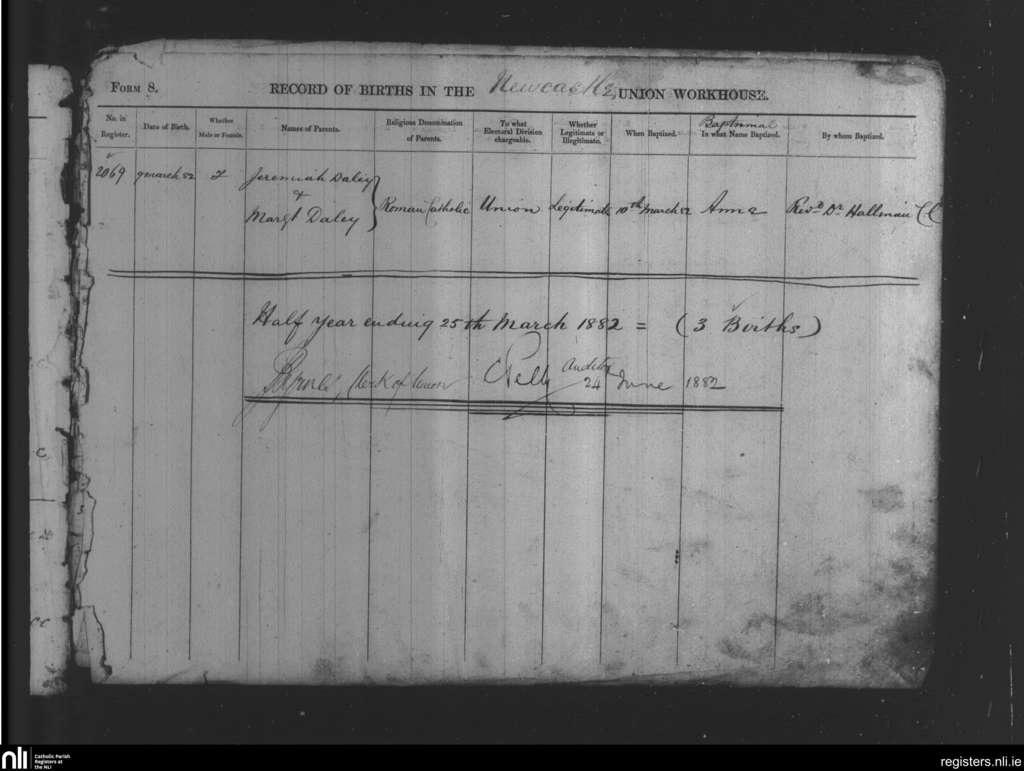 FORM 8. RECORD OF BIRTHS IN THE Newcastle UNION WORKHOUSE.
No. in Register. Date of Birth. Whether Male or Female. Names of Parents. Religious Denomination of Parents. To what Electoral Division chargeable. Whether Legitimate or Illegitimate. When Baptized. Baptismal In what Name Baptized. By whom Baptized.
2069 9 March 82 F Jeremiah Daley
&
Margt Daley } Roman Catholic Union Legitimate 10th March 82 Anne Revd Dr Hallinan CC
Half year ending 25th March 1882 = (3 Births)
Clerk of Union Auditor
24 June 1882
C
CC
nli Catholic Parish
Registers at
the NLI
registers.nli.ie